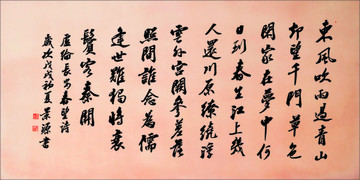 東風吹雨過青山
却望千門草色
閑家在夢中何
日到春生江上幾
人還川原繚繞浮
雲外宮闕參差落
照間誰念為儒
逢世難獨將衰
鬢客秦關
盧綸長安春望詩
歲次戊戌初夏景源書